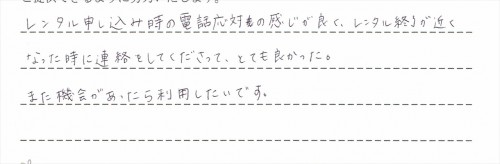 と提供できるように努力いたします。
レンタル申し込み時の電話応対者の感じが良く、レンタル終了が近く
なった時に連絡をしてくださって、とても良かった。
また機会があったら利用したいです。